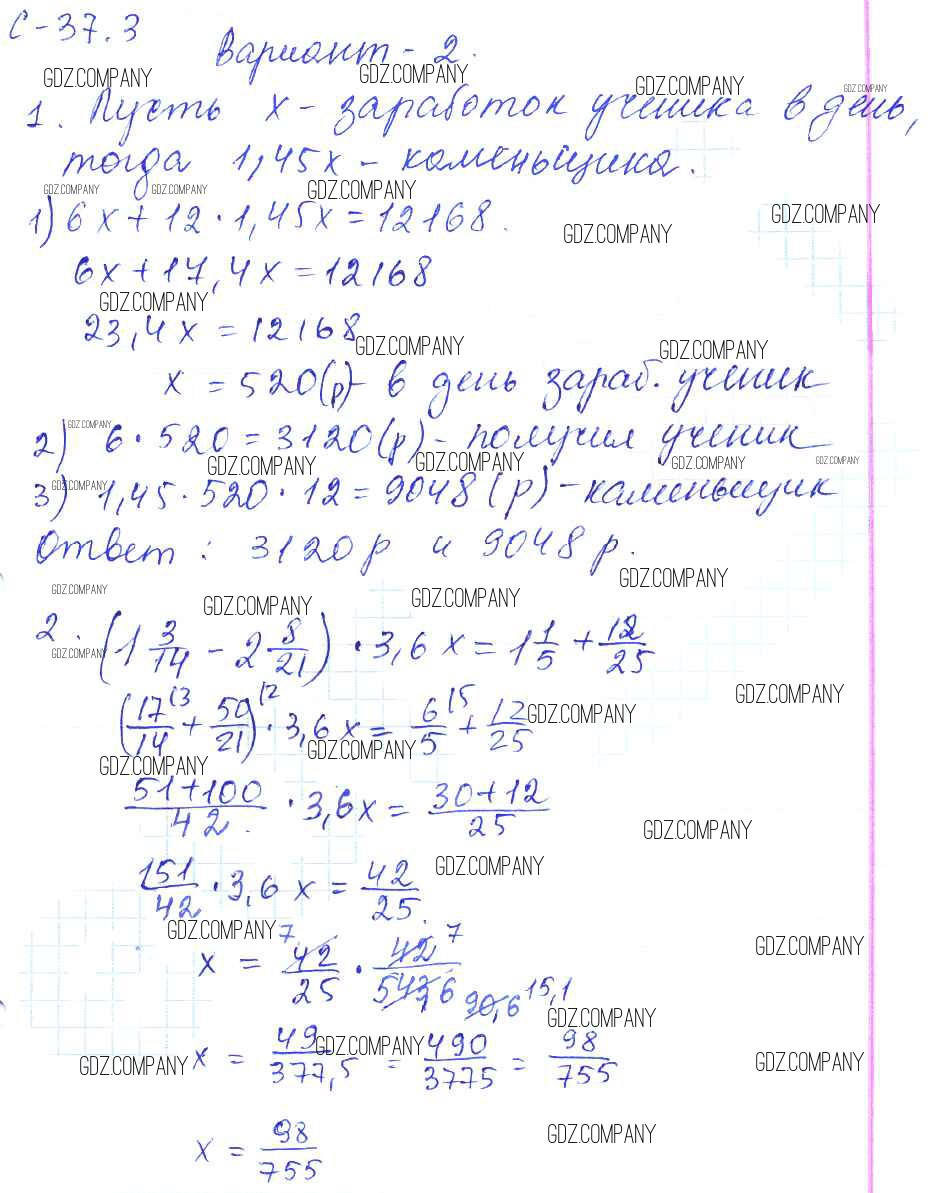 С-37.3
Вариант - 2.
GDZ.COMPANY GDZ.COMPANY GDZ.COMPANY GDZ.COMPANY
1. Пусть х - заработок ученика в день,
тогда 1,45х - каменьщика.
GDZ.COMPANY GDZ.COMPANY GDZ.COMPANY GDZ.COMPANY
1) 6х + 12 · 1,45х = 12168.
GDZ.COMPANY
6х + 17,4х = 12168
GDZ.COMPANY
23,4х = 12168
GDZ.COMPANY GDZ.COMPANY
х = 520(р) - в день зараб. ученик
GDZ.COMPANY
2) 6 · 520 = 3120(р) - получил ученик
GDZ.COMPANY GDZ.COMPANY GDZ.COMPANY GDZ.COMPANY
GDZ.COMPANY
3) 1,45 · 520 · 12 = 9048 (р) - каменьщик
Ответ: 3120р и 9048р.
GDZ.COMPANY GDZ.COMPANY
GDZ.COMPANY GDZ.COMPANY
2. (1 3/14 - 2 8/21) · 3,6х = 1 1/5 + 12/25
GDZ.COMPANY GDZ.COMPANY
(17/14 (3 + 50/21) (2 · 3,6х = 6/5 (5 + 12/25
GDZ.COMPANY GDZ.COMPANY GDZ.COMPANY
(51+100)/42 · 3,6х = (30+12)/25
GDZ.COMPANY
151/42 · 3,6х = 42/25
GDZ.COMPANY GDZ.COMPANY GDZ.COMPANY
х = 42/25 · 42/543,6
7 7
90,6 15,1
GDZ.COMPANY
х = 49/377,5 = 490/3775 = 98/755
GDZ.COMPANY GDZ.COMPANY GDZ.COMPANY
GDZ.COMPANY
х = 98/755